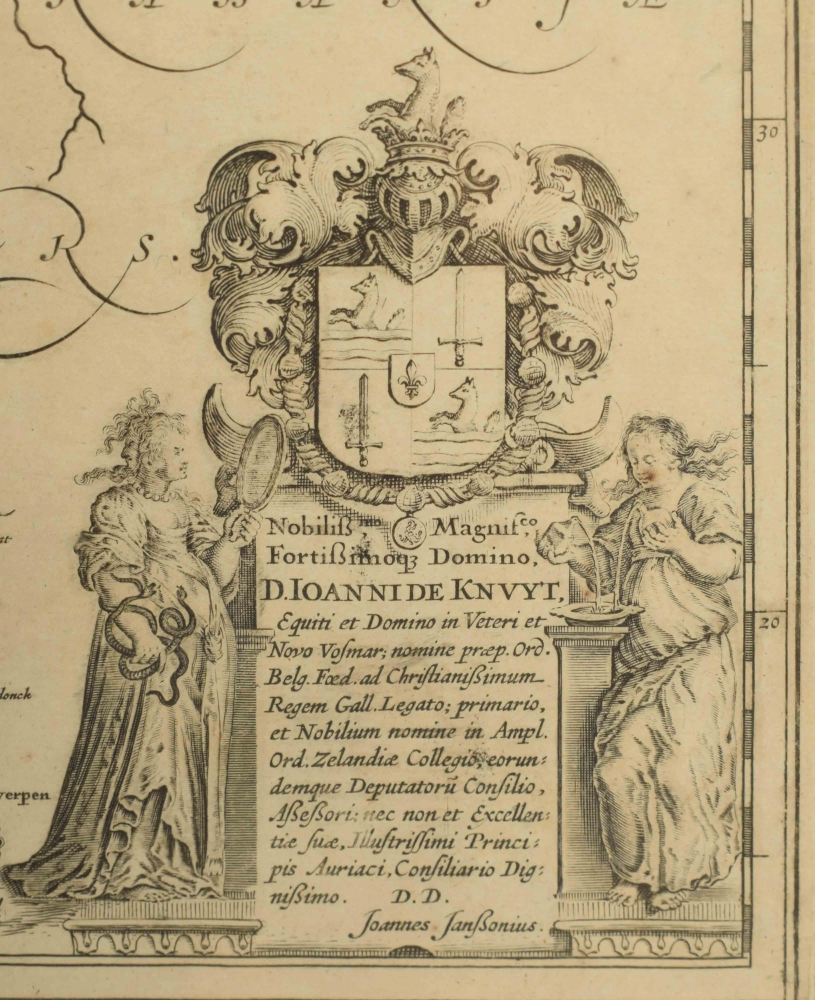 R S.
30
20
Nobiliß.mo Magnifco,
Fortißimoqȝ Domino,
D. IOANNI DE KNVYT,
Equiti et Domino in Veteri et
Novo Vosmar; nomine præp. Ord.
Belg. Fœd. ad Christianißimum
Regem Gall. Legato; primario,
et Nobilium nomine in Ampl.
Ord. Zelandiæ Collegio, eorun:
demque Deputatorū Consilio,
Aßeßori: nec non et Excellen:
tiæ suæ, Illustrissimi Princi:
pis Auriaci, Consiliario Dig:
nißimo. D. D.
Joannes Janßonius.